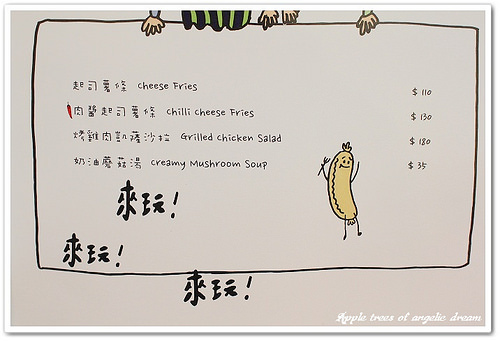 起司薯條 Cheese Fries $ 110
肉醬起司薯條 Chilli Cheese Fries $ 130
烤雞肉凱薩沙拉 Grilled Chicken Salad $ 180
奶油蘑菇湯 Creamy Mushroom Soup $ 35
來玩!
來玩!
來玩!
Apple trees of angelic dream